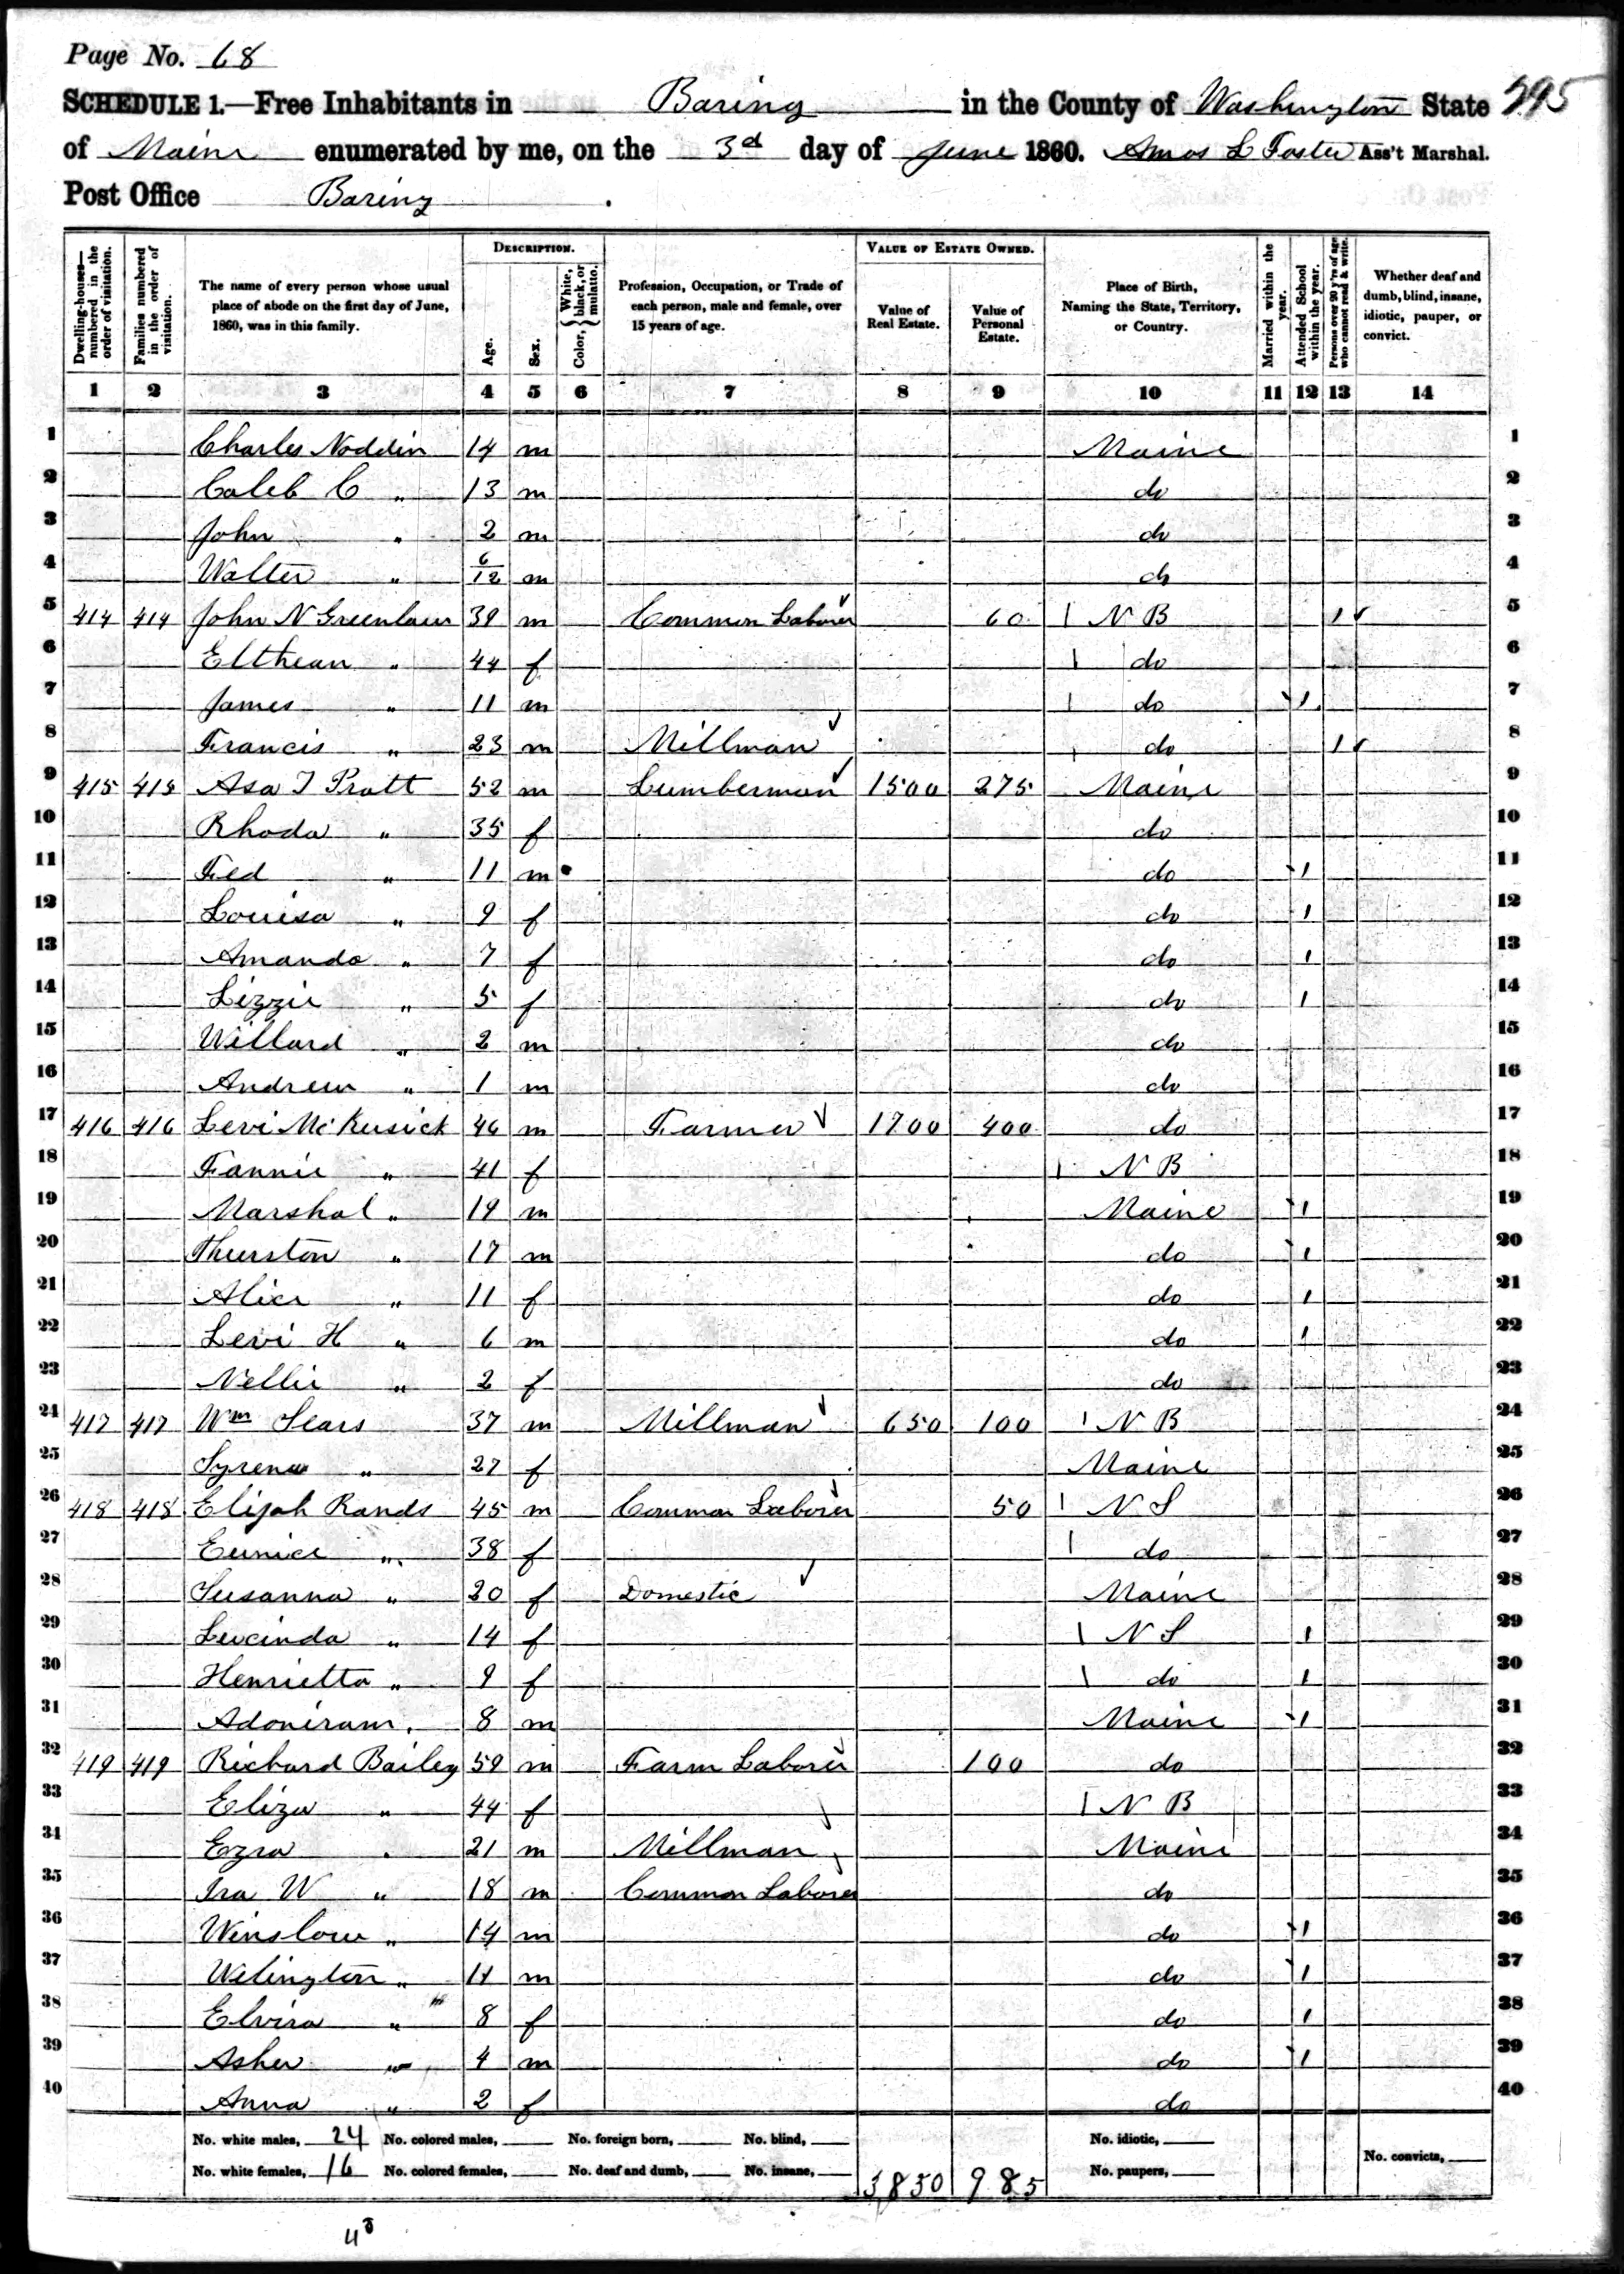 Page No. 68
SCHEDULE 1.—Free Inhabitants in Baring in the County of Washington State 295
of Maine enumerated by me, on the 3d day of June 1860. Amos L Foster Ass't Marshal.
Post Office Baring.
Dwelling-houses—numbered in the order of visitation.
Families numbered in the order of visitation.
The name of every person whose usual place of abode on the first day of June, 1860, was in this family.
DESCRIPTION.
Age.
Sex.
Color, { White, black, or mulatto.
Profession, Occupation, or Trade of each person, male and female, over 15 years of age.
VALUE OF ESTATE OWNED.
Value of Real Estate.
Value of Personal Estate.
Place of Birth, Naming the State, Territory, or Country.
Married within the year.
Attended School within the year.
Persons over 20 y'rs of age who cannot read & write.
Whether deaf and dumb, blind, insane, idiotic, pauper, or convict.
1 2 3 4 5 6 7 8 9 10 11 12 13 14
1 Charles Noddin 14 m Maine 1
2 Caleb C " 13 m do 2
3 John " 2 m do 3
4 Walter " 6/12 m do 4
5 414 414 John N Greenlaw 39 m Common Laborer 60 1 N B 1 5
6 " 44 f 1 do 6
7 James " 11 m 1 do 1 7
8 Francis " 23 m Millman 1 do 1 8
9 415 415 Asa T Pratt 52 m Lumberman 1500 275 Maine 9
10 Rhoda " 35 f do 10
11 Fed " 11 m do 1 11
12 Louisa " 9 f do 1 12
13 Amanda " 7 f do 1 13
14 Lizzie " 5 f do 1 14
15 Willard " 2 m do 15
16 Andrew " 1 m do 16
17 416 416 Levi McKusick 46 m Farmer 1700 400 do 17
18 Fannie " 41 f 1 N B 18
19 Marshal " 19 m Maine 1 19
20 Thurston " 17 m do 1 20
21 Alice " 11 f do 1 21
22 Levi H " 6 m do 1 22
23 Nellie " 2 f do 23
24 417 417 Wm Sears 37 m Millman 650 100 1 N B 24
25 Syrena " 27 f Maine 25
26 418 418 Elijah Rands 45 m Common Laborer 50 1 N S 26
27 Eunice " 38 f 1 do 27
28 Susanna " 20 f Domestic Maine 28
29 Lucinda " 14 f 1 N S 1 29
30 Henrietta " 9 f 1 do 1 30
31 Adoniram " 8 m Maine 1 31
32 419 419 Richard Bailey 59 m Farm Laborer 100 do 32
33 Eliza " 44 f 1 N B 33
34 Ezra " 21 m Millman Maine 34
35 Ira W " 18 m Common Laborer do 35
36 Winslow " 14 m do 1 36
37 Welington " 11 m do 1 37
38 Elvira " 8 f do 1 38
39 Asher " 4 m do 1 39
40 Anna " 2 f do 40
No. white males, 24 No. colored males, No. foreign born, No. blind, No. idiotic,
No. white females, 16 No. colored females, No. deaf and dumb, No. insane, 3850 985 No. paupers, No. convicts,